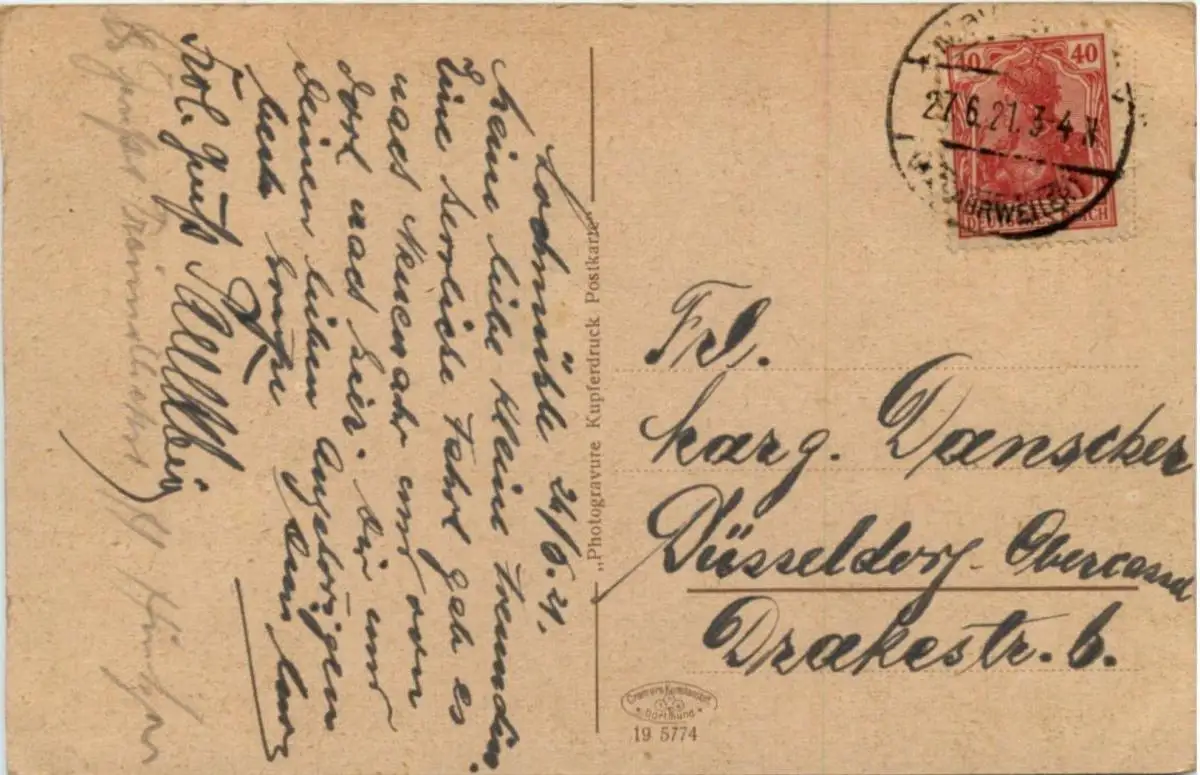 Lochmühle 26/6.21.
Meine liebe kleine Freundin!
Eine herrliche Fahrt geht es
nach Neuenahr und von
dort nach hier. Dir und
Deinen lieben Angehörigen
beste Grüße
Frdl. Gruß
„Photogravure Kupferdruck Postkarte“
40 40
27.6.21. 3-4 N
(AHRWEILER)
DEUTSCHES REICH
Frl.
Marg. Danscher
Düsseldorf-Obercassel
Drakestr. 6.
Cramers Kunstanstalt
Dortmund
19 5774